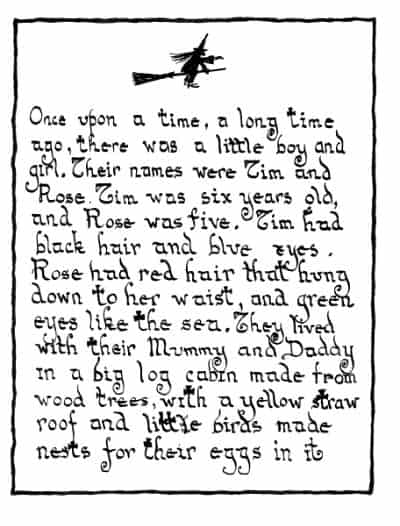 Once upon a time, a long time
ago, there was a little boy and
girl. Their names were Tim and
Rose. Tim was six years old,
and Rose was five. Tim had
black hair and blue eyes.
Rose had red hair that hung
down to her waist, and green
eyes like the sea. They lived
with their Mummy and Daddy
in a big log cabin made from
wood trees, with a yellow straw
roof and little birds made
nests for their eggs in it